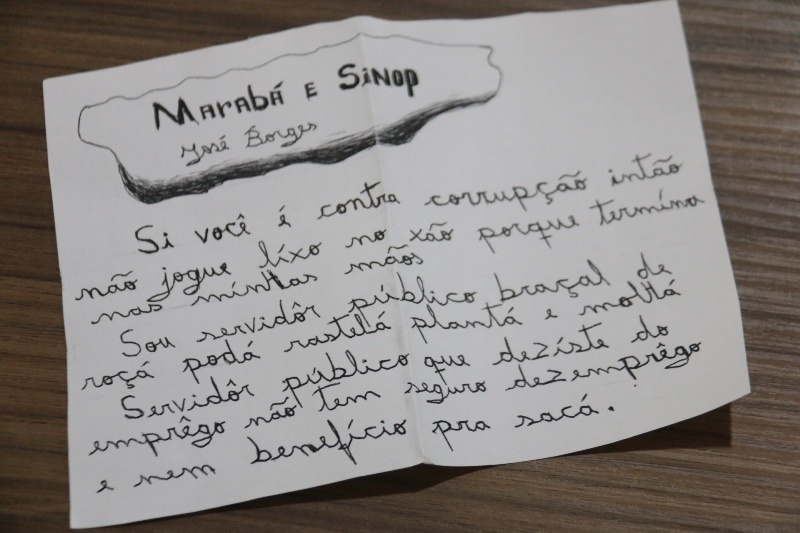 Marabá e Sinop
José Borges
Si você é contra corrupção intão
não jogue lixo no xão porque termina
nas minhas mãos
Sou servidôr público braçal de
roçá podá rastelá plantá e molhá
Servidôr público que deziste do
emprêgo não tem seguro dezemprêgo
e nem benefício pra sacá.